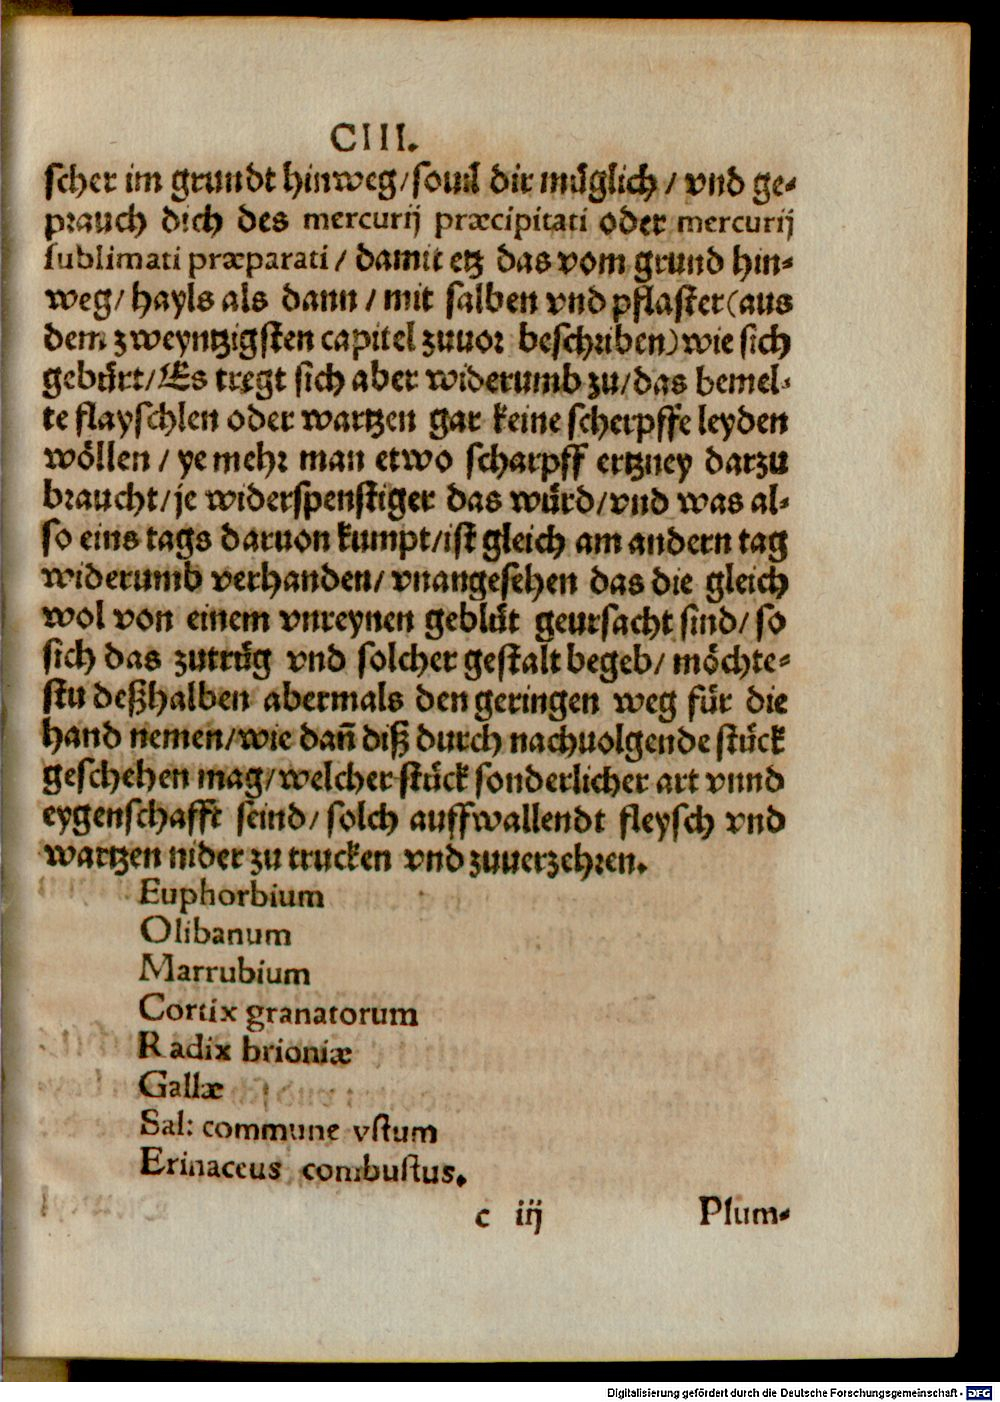 CIII.
scher im grundt hinweg/souil dir müglich/ vnd ge-
prauch dich des mercurij præcipitati oder mercurij
sublimati præparati/ damit etz das vom grund hin-
weg/ hayls als dann/ mit salben vnd pflaster(aus
dem zweyntzigsten capitel zuuor beschriben)wie sich
gebürt/Es tregt sich aber widerumb zu/das bemel-
te flayschlen oder wartzen gar keine scherpffe leyden
wöllen/ ye mehr man etwo scharpff ertzney darzu
braucht/je widerspenstiger das würd/vnd was al-
so eins tags daruon kumpt/ist gleich am andern tag
widerumb verhanden/ vnangesehen das die gleich
wol von einem vnreynen geblüt geursacht sind/ so
sich das zutrüg vnd solcher gestalt begeb/ möchte-
stu deßhalben abermals den geringen weg für die
hand nemen/wie dañ diß durch nachuolgende stück
geschehen mag/welcher stück sonderlicher art vnnd
eygenschafft seind/ solch auffwallendt fleysch vnd
wartzen nider zu trucken vnd zuuerzehren.
Euphorbium
Olibanum
Marrubium
Cortix granatorum
Radix brioniæ
Gallæ
Sal: commune vstum
Erinaceus combustus.
c iij Plum-
Digitalisierung gefördert durch die Deutsche Forschungsgemeinschaft - DFG